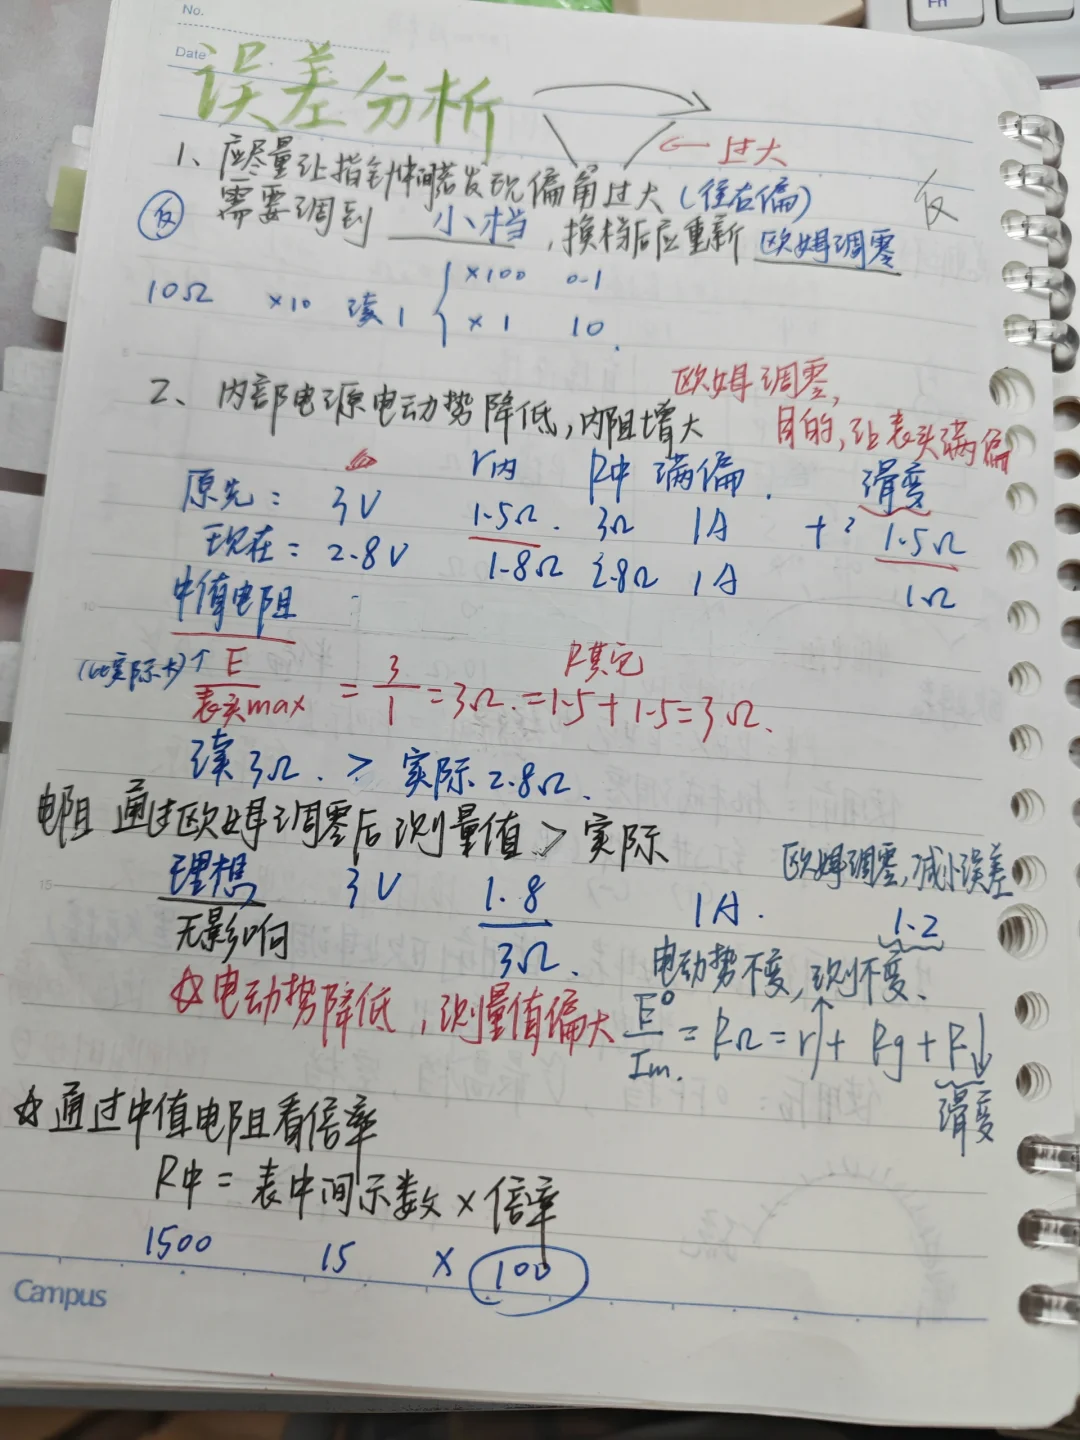 No.
Date
误差分析
← 过大
1、应尽量让指针中间若发现偏角过大(往右偏)
反
需要调到 小档,换档后应重新 欧姆调零
反
10Ω ×10 读1 { ×100 0.1
×1 10.
欧姆调零,
2、内部电源电动势降低,内阻增大
目的,让表头满偏
r内 R中 满偏. 滑变
原先: 3V 1.5Ω. 3Ω 1A +? 1.5Ω
现在: 2.8V 1.8Ω 2.8Ω 1A 1Ω
中值电阻
(比实际大)↑ E/表头max = 3/1 = 3Ω. = 1.5+1.5=3Ω.
R其它
读3Ω. > 实际2.8Ω.
电阻 通过欧姆调零后测量值 > 实际
欧姆调零,减小误差
理想 3V 1.8 1A. 1.2
无影响 3Ω.
电动势不变,测不变、
☆电动势降低,测量值偏大
E/Im. = RΩ = r↑ + Rg + R↓
滑变
☆通过中值电阻看倍率
R中 = 表中间示数×倍率
1500 15 × 100
Campus